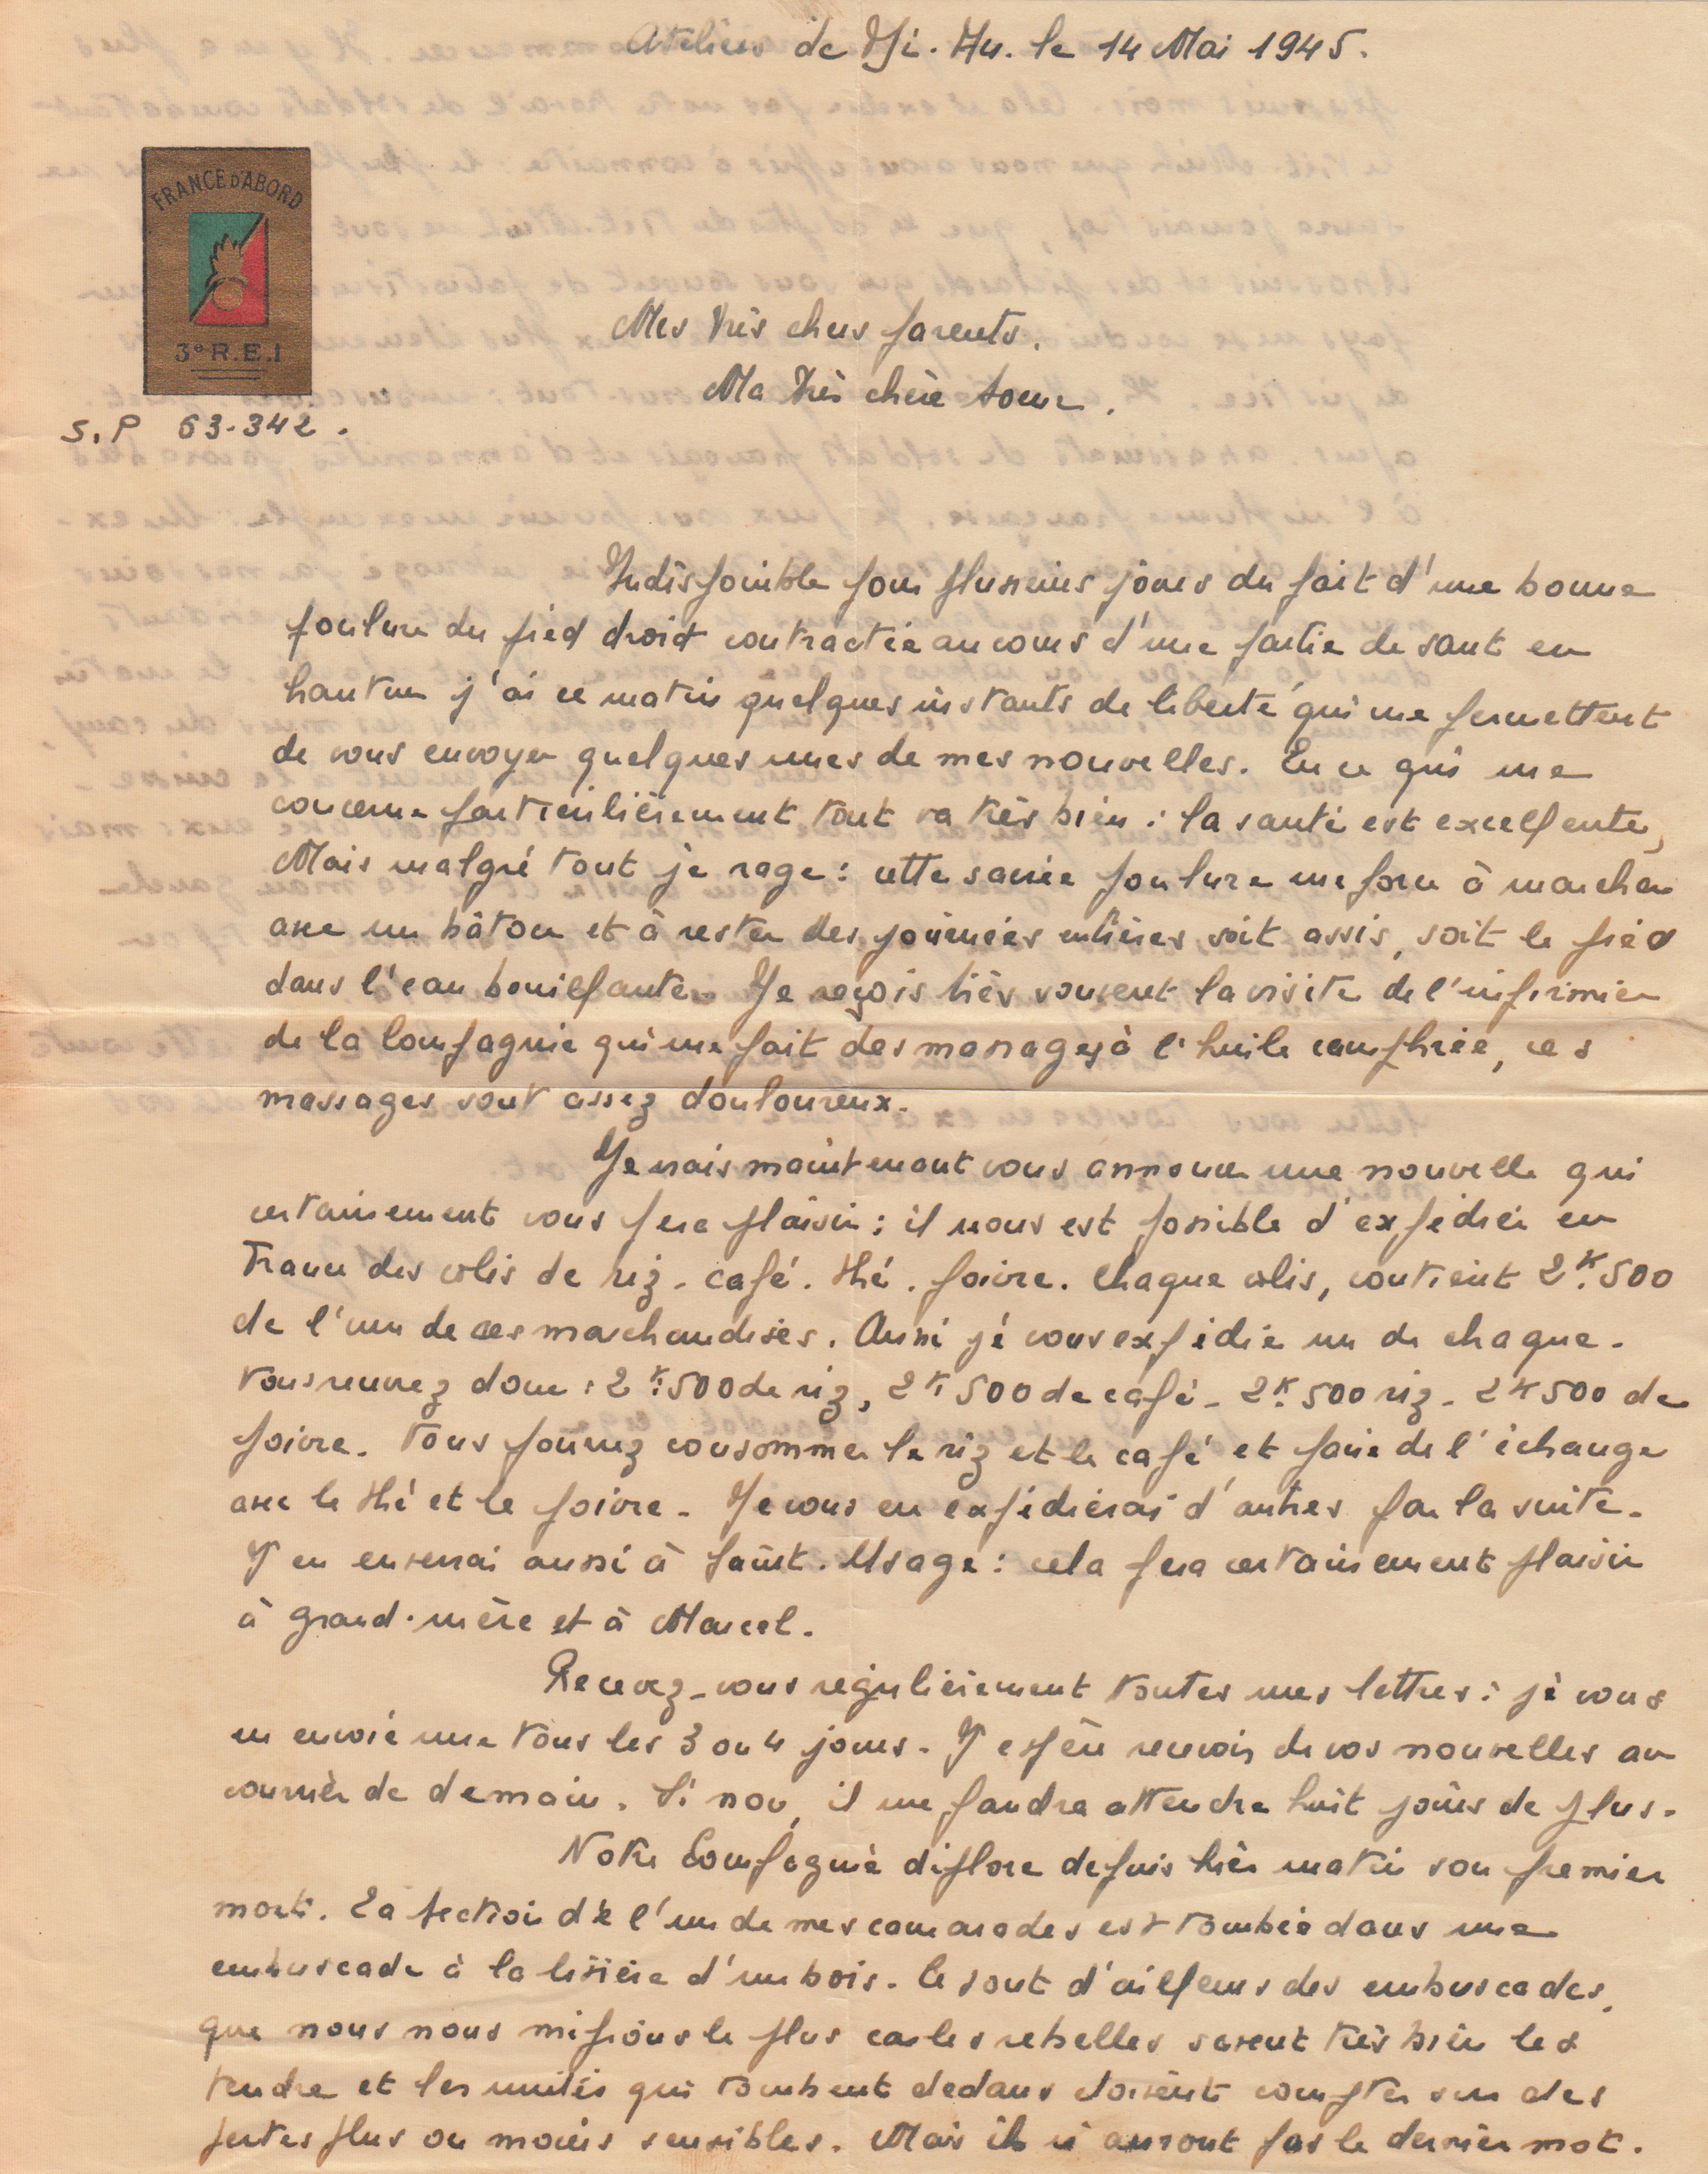 Ateliers de Yi. Hu. le 14 Mai 1945.
FRANCE D'ABORD
3e R.E.I
S.P 63-342.
Mes très chers parents.
Ma très chère soeur.
Indisponible pour plusieurs jours du fait d'une bonne
foulure du pied droit contractée au cours d'une partie de saut en
hauteur j'ai ce matin quelques instants de liberté qui me permettent
de vous envoyer quelques unes de mes nouvelles. En ce qui me
concerne particulièrement tout va très bien : la santé est excellente,
Mais malgré tout je rage : cette sacrée foulure me force à marcher
avec un bâton et à rester des journées entières soit assis, soit le pied
dans l'eau bouillante. Je reçois très souvent la visite de l'infirmier
de la Compagnie qui me fait des massages à l'huile camphrée, ces
massages sont assez douloureux.
Je vais maintenant vous annoncer une nouvelle qui
certainement vous fera plaisir : il nous est possible d'expédier en
France des colis de riz - café. thé. poivre. Chaque colis, contient 2K.500
de l'une de ces marchandises. Aussi je vous expédie un de chaque.
Vous recevrez donc : 2K.500 de riz, 2K 500 de café - 2K.500 riz - 2K500 de
poivre. Vous pourrez consommer le riz et le café et faire de l'échange
avec le thé et le poivre - Je vous en expédierai d'autres par la suite.
J'en enverrai aussi à Saint. Usage : cela fera certainement plaisir
à grand-mère et à Marcel.
Recevez-vous régulièrement toutes mes lettres : je vous
en envoie une tous les 3 ou 4 jours - J'espère recevoir de vos nouvelles au
courrier de demain. Si non, il me faudra attendre huit jours de plus.
Notre Compagnie déplore depuis hier matin son premier
mort. La section de l'un de mes camarades est tombée dans une
embuscade à la lisière d'un bois. Ce sont d'ailleurs des embuscades,
que nous nous méfions le plus car les rebelles savent très bien les
tendre et les unités qui tombent dedans doivent compter sur des
pertes plus ou moins sensibles. Mais ils n'auront pas le dernier mot.